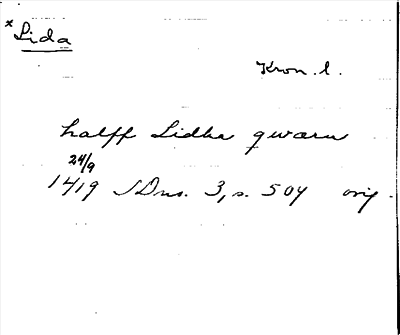 * Lida
Kron. l.
halff Lidha qwarn
24/9
1419 SDns. 3, s. 504 orig.